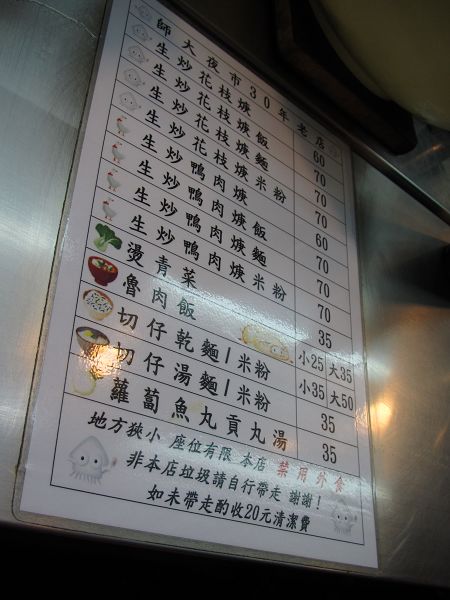 師大夜市30年老店
生炒花枝焿 60
生炒花枝焿飯 70
生炒花枝焿麵 70
生炒花枝焿米粉 70
生炒鴨肉焿 60
生炒鴨肉焿飯 70
生炒鴨肉焿麵 70
生炒鴨肉焿米粉 70
燙青菜 35
魯肉飯 小25 大35
切仔乾麵/米粉 小35 大50
切仔湯麵/米粉 35
蘿蔔魚丸貢丸湯 35
地方狹小 座位有限 本店 禁用外食
非本店垃圾請自行帶走 謝謝!
如未帶走酌收20元清潔費